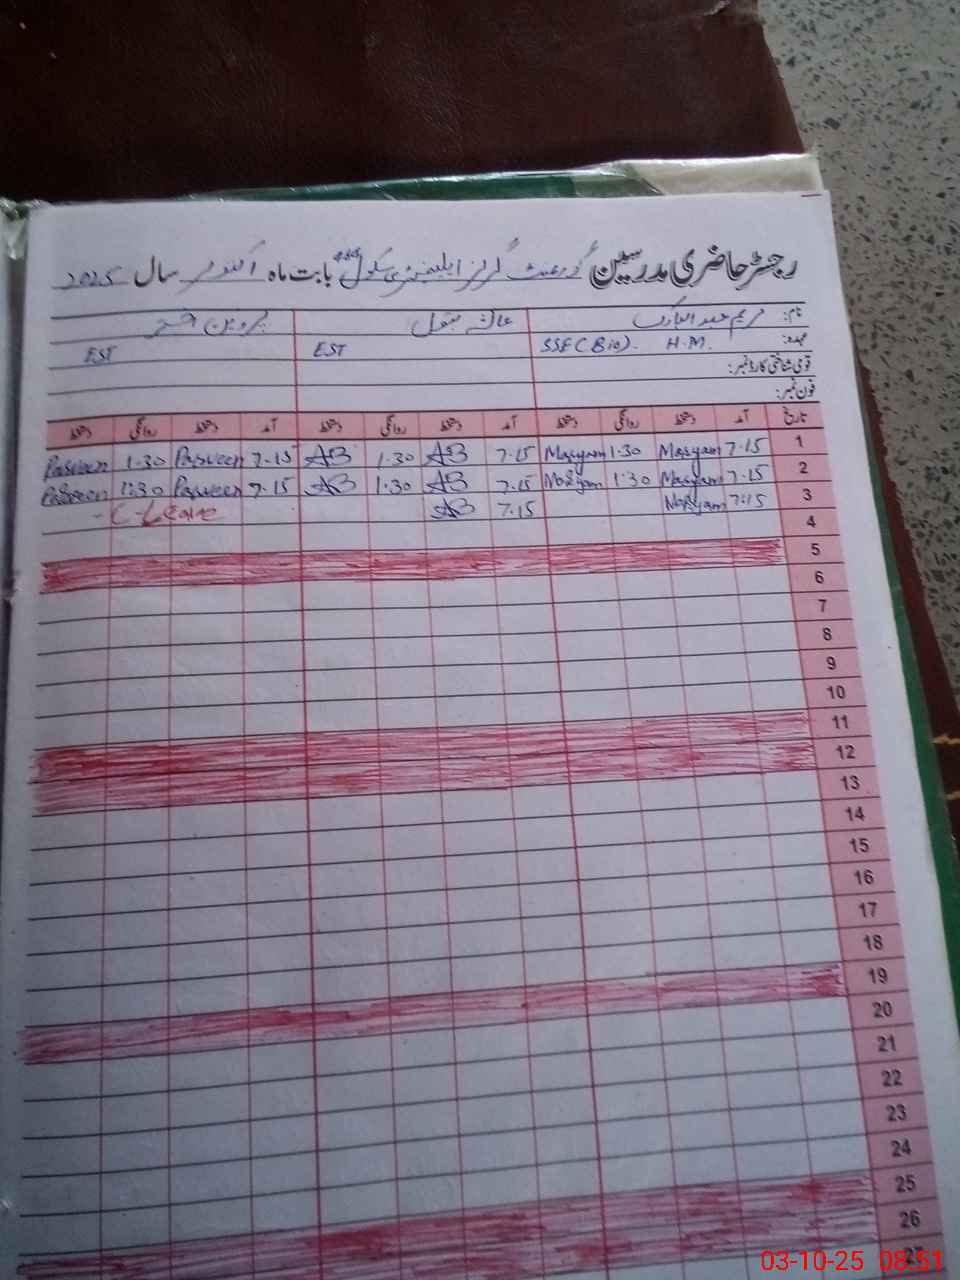 رجسٹر حاضری مدرسین گورنمنٹ گرلز ایلیمنٹری سکول بابت ماہ اکتوبر سال 2025
نام: مریم پروین
عہدہ: H.M. SSE(Bio). EST EST
قومی شناختی کارڈ نمبر:
فون نمبر:
تاریخ آمد دستخط روانگی دستخط آمد دستخط روانگی دستخط آمد دستخط روانگی دستخط
1 7.15 Maryam 1.30 Maryam 7.15 AB 1.30 AB 7.15 Parveen 1.30 Parveen
2 7.15 Maryam 1.30 Maryam 7.15 AB 1.30 AB 7.15 Parveen 1:30 Parveen
3 7.15 Maryam 7.15 AB C-Leave
4
5
6
7
8
9
10
11
12
13
14
15
16
17
18
19
20
21
22
23
24
25
26
27
03-10-25 08:51